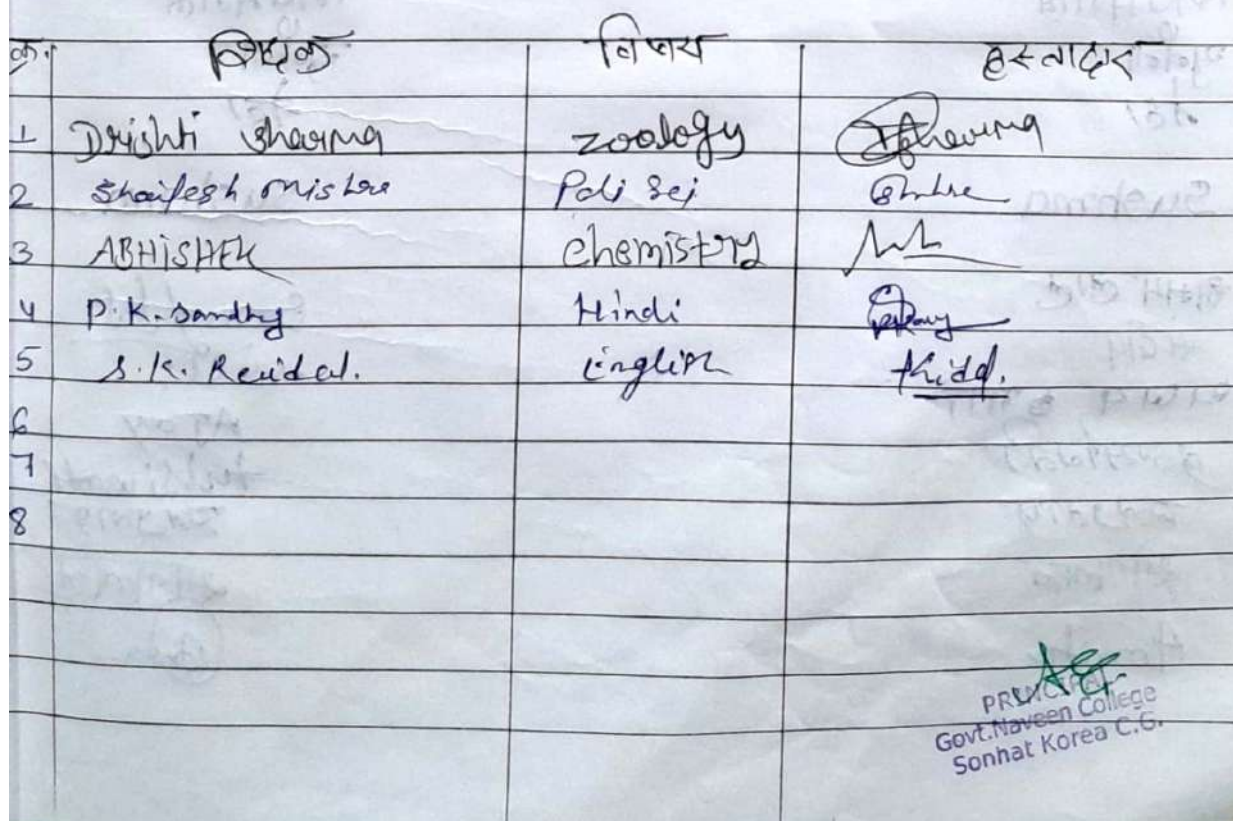 क्र. शिक्षक विषय हस्ताक्षर
1 Drishti Sharma Zoology Sharma
2 Shailesh Mishra Poli Sci
3 ABHISHEK Chemistry
4 P.K. Sandhy Hindi
5 S.K. Reidal. English
6
7
8
PRINCIPAL
Govt.Naveen College
Sonhat Korea C.G.